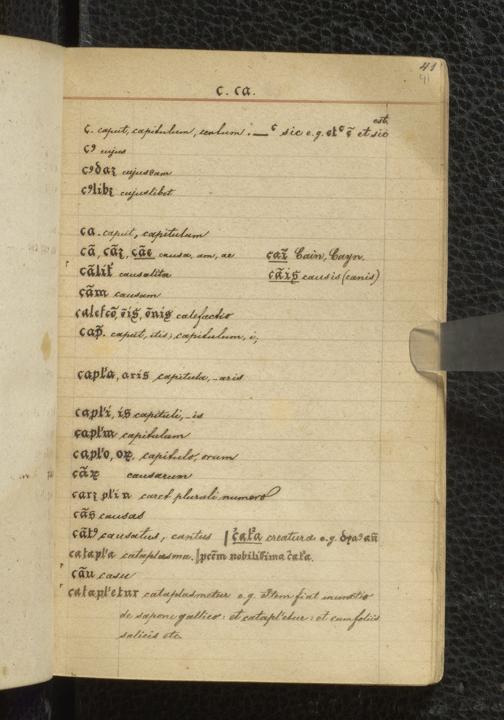 41
41
c. ca.
c. caput, capitulum, centum. —c sic e.g. etc c̄ et sic est
cꝰ cujus
cꝰdaꝫ cujusdam
cꝰlibꝫ cujuslibet
ca. caput, capitulum
cā, cāꝫ, cāe causa, am, ae caī Cain, Cayn.
cālit causalita cāis causis (canis)
cām causam
calefco, ōis, ōnis calefactio
cap̄. caput, itis; capitulum, i;
capl'a, aris capitula, -aris
capl'i, is capituli, -is
capl'm capitulum
capl'o, oꝝ, capitulo, orum
cāꝝ causarum
carꝫ pli n caret plurali numero
cās causas
cātꝰ causatus, cantus creatura e.g.
catapl'a cataplasma. nobilissima
cāu casu
catapl'etur cataplasmetur e.g. Item fiat inunctio
de sapone gallico: et catapl'etur: et cum foliis
salicis etc.